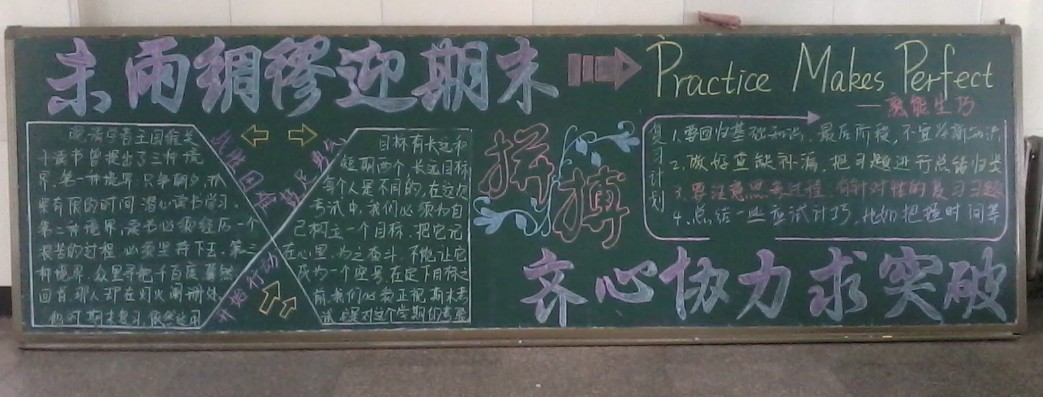 未雨绸缪迎期末
Practice Makes Perfect
——熟能生巧
晚清学者王国维关
于读书曾提出了三种境
界，第一种境界，只争朝夕，
果有限的时间，潜心读书学习，
第二种境界，读书必须经历一个
艰苦的过程，必须坚持下去，第三
种境界，众里寻他千百度，蓦然
回首，那人却在灯火阑珊处，
他对期末复习依然
目标有长远和
短期两个，长远目标
每个人是不同的，在这次
考试中，我们必须为自
己树立一个目标，把它记
在心里，为之奋斗，不能让它
成为一个空号，在定下目标之
前，我们必须正视期末考
试，这是对这个学期
开始行动
拼搏
复习计划
1.要回归基础知识，最后阶段，不宜
2.做好查缺补漏，把习题进行总结归类
3.要注意思考过程，有针对性的复习习题
4.总结一些应试技巧，比如把握时间等
齐心协力求突破